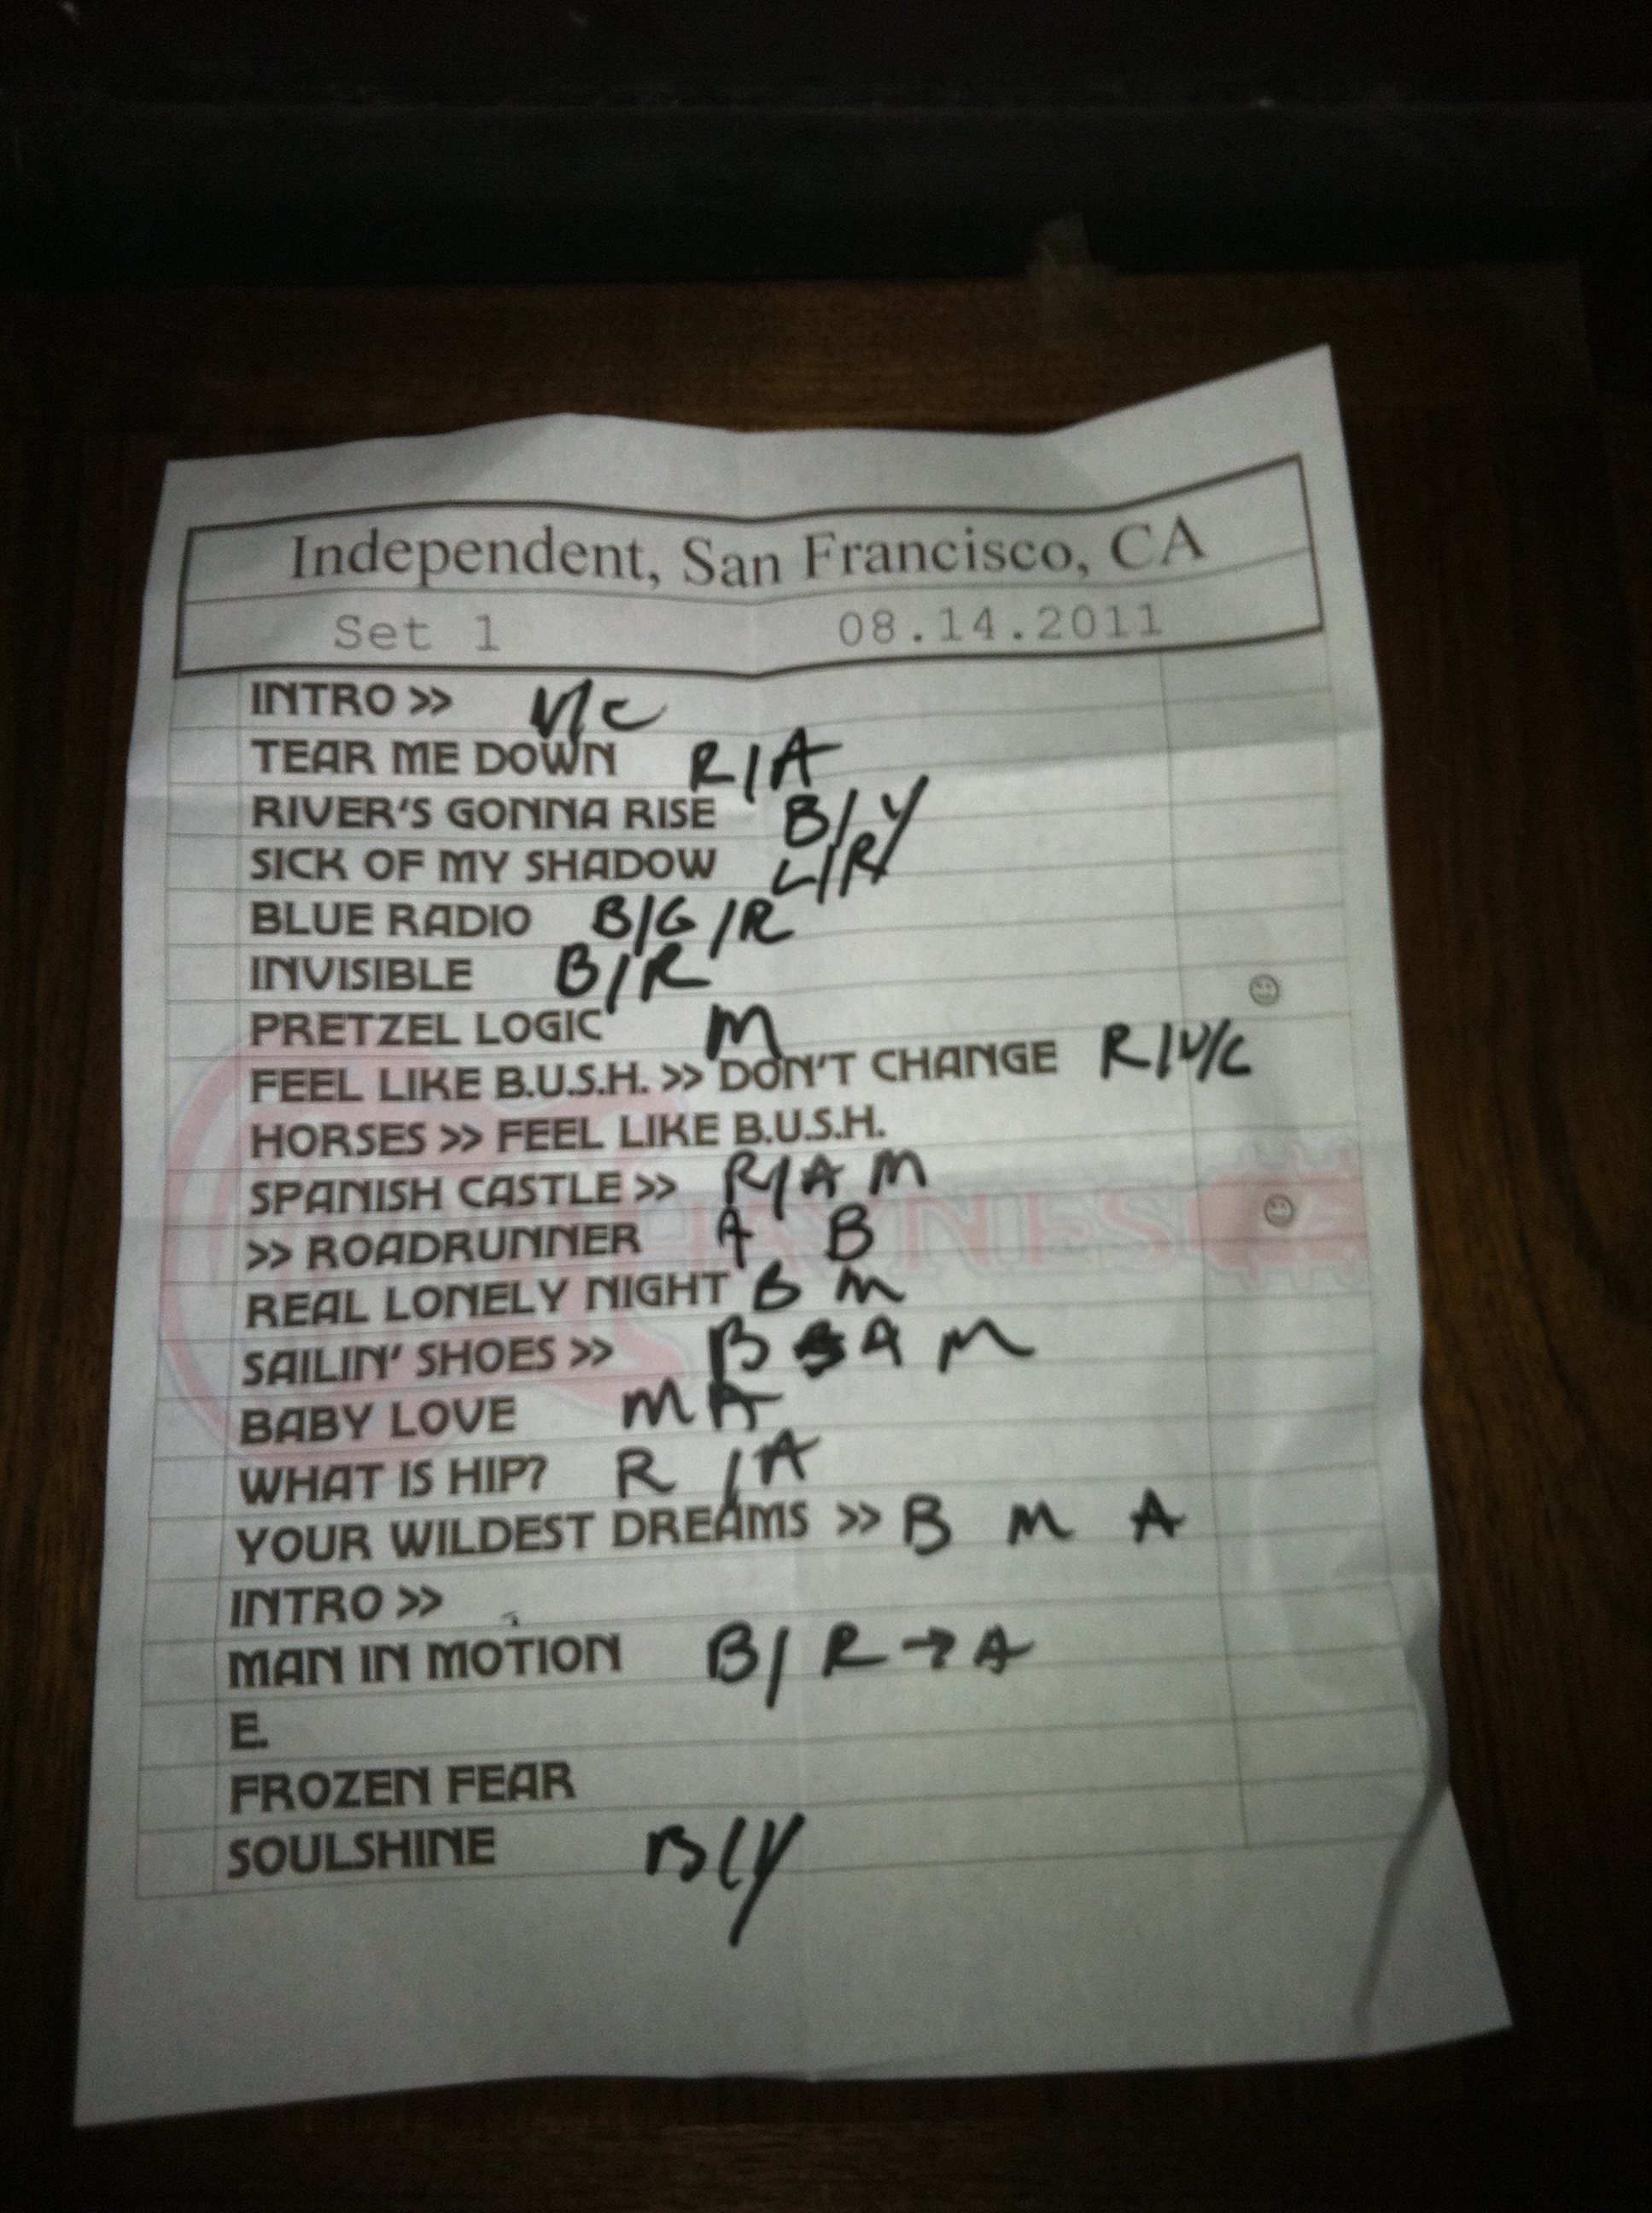 Independent, San Francisco, CA
Set 1 08.14.2011
INTRO >> V/C
TEAR ME DOWN R/A
RIVER'S GONNA RISE B/Y
SICK OF MY SHADOW L/R
BLUE RADIO B/G/R
INVISIBLE B/R
PRETZEL LOGIC M
FEEL LIKE B.U.S.H. >> DON'T CHANGE R/V/C
HORSES >> FEEL LIKE B.U.S.H.
SPANISH CASTLE >> R/A M
>> ROADRUNNER A B
REAL LONELY NIGHT B M
SAILIN' SHOES >> B A M
BABY LOVE M A
WHAT IS HIP? R /A
YOUR WILDEST DREAMS >> B M A
INTRO >>
MAN IN MOTION B/ R → A
E.
FROZEN FEAR
SOULSHINE B/Y
HAYNES